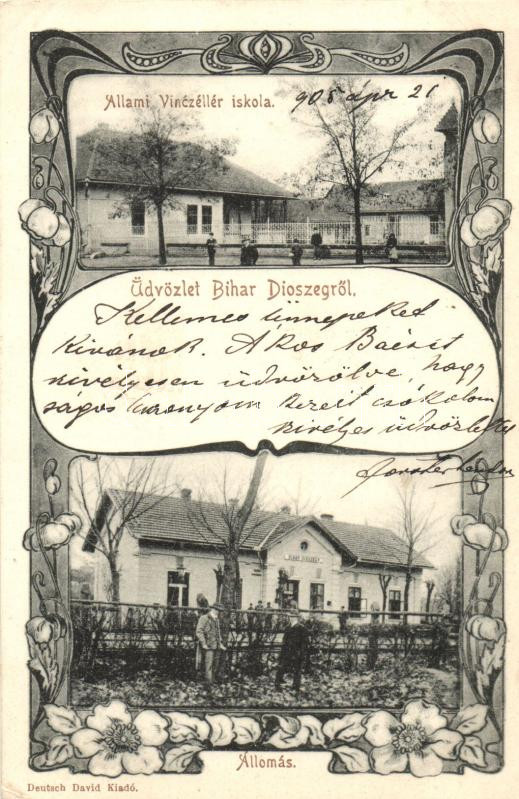 Állami Vinczéllér iskola.
905 ápr 21
Üdvözlet Bihar Dioszegről.
Kellemes ünnepeket
kivánok. Ákos Bácsit
szivélyesen üdvözölve, hogy
ságos Asszonyom kezeit csókolom
szivélyes üdvözlettel
BIHAR DIOSZEGH
Állomás.
Deutsch David Kiadó.